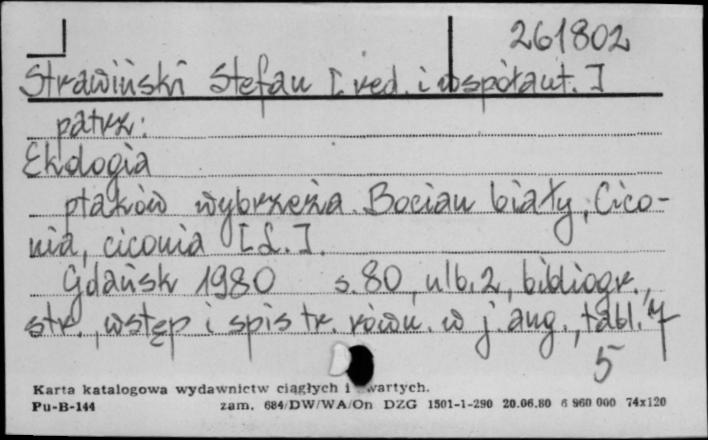 261802
Strawiński Stefan [red. i współaut.]
patrz:
Ekologia
ptaków wybrzeża. Bocian biały, Cico-
nia, ciconia [L.].
Gdańsk 1980 s. 80, nlb. 2, bibliogr.,
str., wstęp i spis tr. równ. w j. ang., tabl. 7
5
Karta katalogowa wydawnictw ciągłych i wartych.
Pu-B-144 zam. 684/DW/WA/On DZG 1501-1-290 20.06.80 6 960 000 74x120